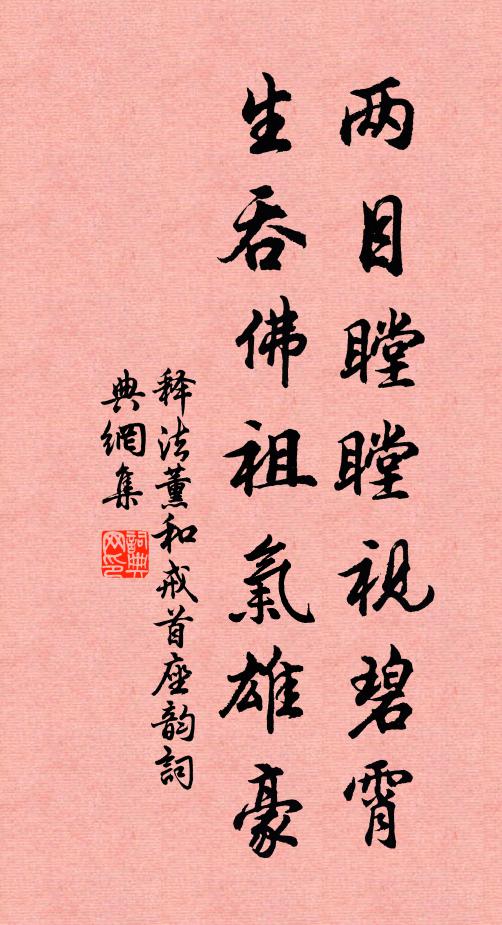 两目瞠瞠視碧霄
生吞佛祖氣雄豪
释法薰和戒首座韵詞
典網集
詞典网印